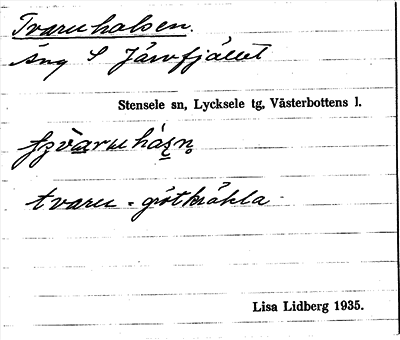 Tvaruhalsen.
äng S Järvfjället
Stensele sn, Lycksele tg, Västerbottens l.
tvaru - grötkräkla
Lisa Lidberg 1935.